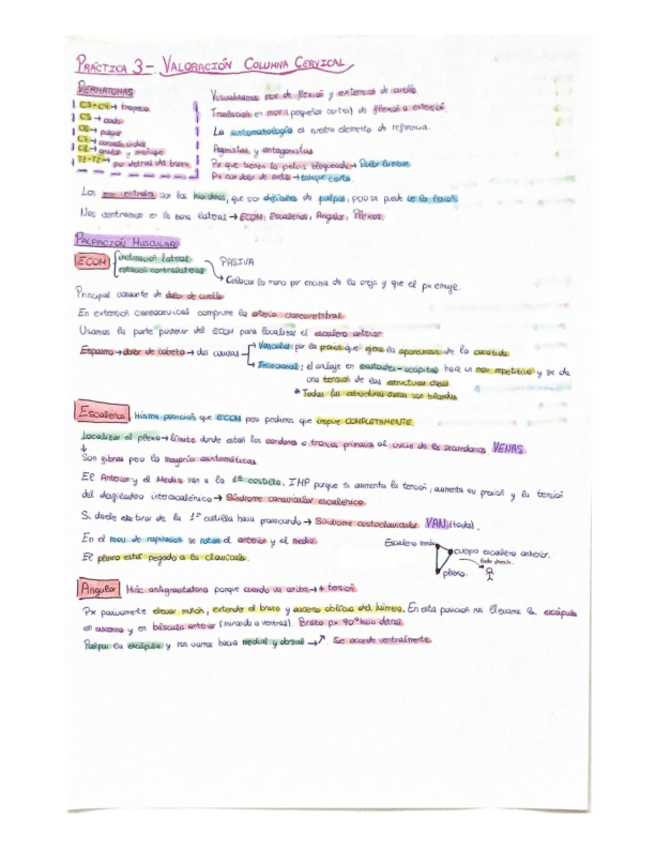 PRÁCTICA 3 - VALORACIÓN COLUMNA CERVICAL
DERMATOMAS
C3-C4 → trapecio
C5 → codo
C6 → pulgar
C7 →
C8 → anular y meñique
T1-T2 → por detrás del brazo
Visualizamos mov de flexión y extensión de cuello.
Traslación en mov (pequeños cortes) de flexión a extensión
La sintomatología es nuestro elemento de referencia.
Agonistas y antagonistas
Px que tienen la pelvis bloqueada → Dolor lumbar
Px con dolor de cuello → tanque corto.
Los son los hioideos, que son difíciles de palpar, pero se puede
Nos centramos en la zona lateral → ECOM, Escalenos, Angular, Plexos.
PALPACIÓN MUSCULAR
ECOM { inclinación lateral
rotación contralateral
PASIVA
→ Colocar la mano por encima de la oreja y que el px empuje.
Principal causante de dolor de cuello
En extensión comprime la arteria
Usamos la parte posterior del ECOM para localizar el escaleno anterior.
Espasmo → dolor de cabeza → dos causas
→ Vascular: por la presión que ejerce la aponeurosis de la carótida
→ : el anclaje en mastoides - occipital hace un mov repetitivo y se da
una tensión de las estructuras óseas.
* Todas las estructuras óseas son blandas
Escalenos, Misma posición que ECOM pero pedimos que inspire COMPLETAMENTE.
Localizar el plexo → límite donde están los cordones o troncos primarios al inicio de los secundarios VENAS
↓
Son fibras pero la mayoría asintomáticas
El Anterior y el Medio van a la 1ª costilla. IMP porque si aumenta la tensión, aumenta su presión y la tensión
del desfiladero interescalénico → Síndrome escalénico.
Si duele este tirar de la 1ª costilla hacia provocando → Síndrome costoclavicular VAN (todo).
En el mov de rotación se rotan el anterior y el medio.
El plexo está pegado a la clavícula.
Escaleno medio
cuerpo escaleno anterior.
plexo.
Angular Músc antigravitatorio porque cuando va arriba → + tensión.
Px pasivamente elevar muñón, extender el brazo y ascenso oblicuo del húmero. En esta posición nos llevamos la escápula
en ascenso y en báscula anterior (mirando a ventral). Brazo px 90° hacia detrás.
Palpar la escápula y nos vamos hacia medial y dorsal → Se accede ventralmente.